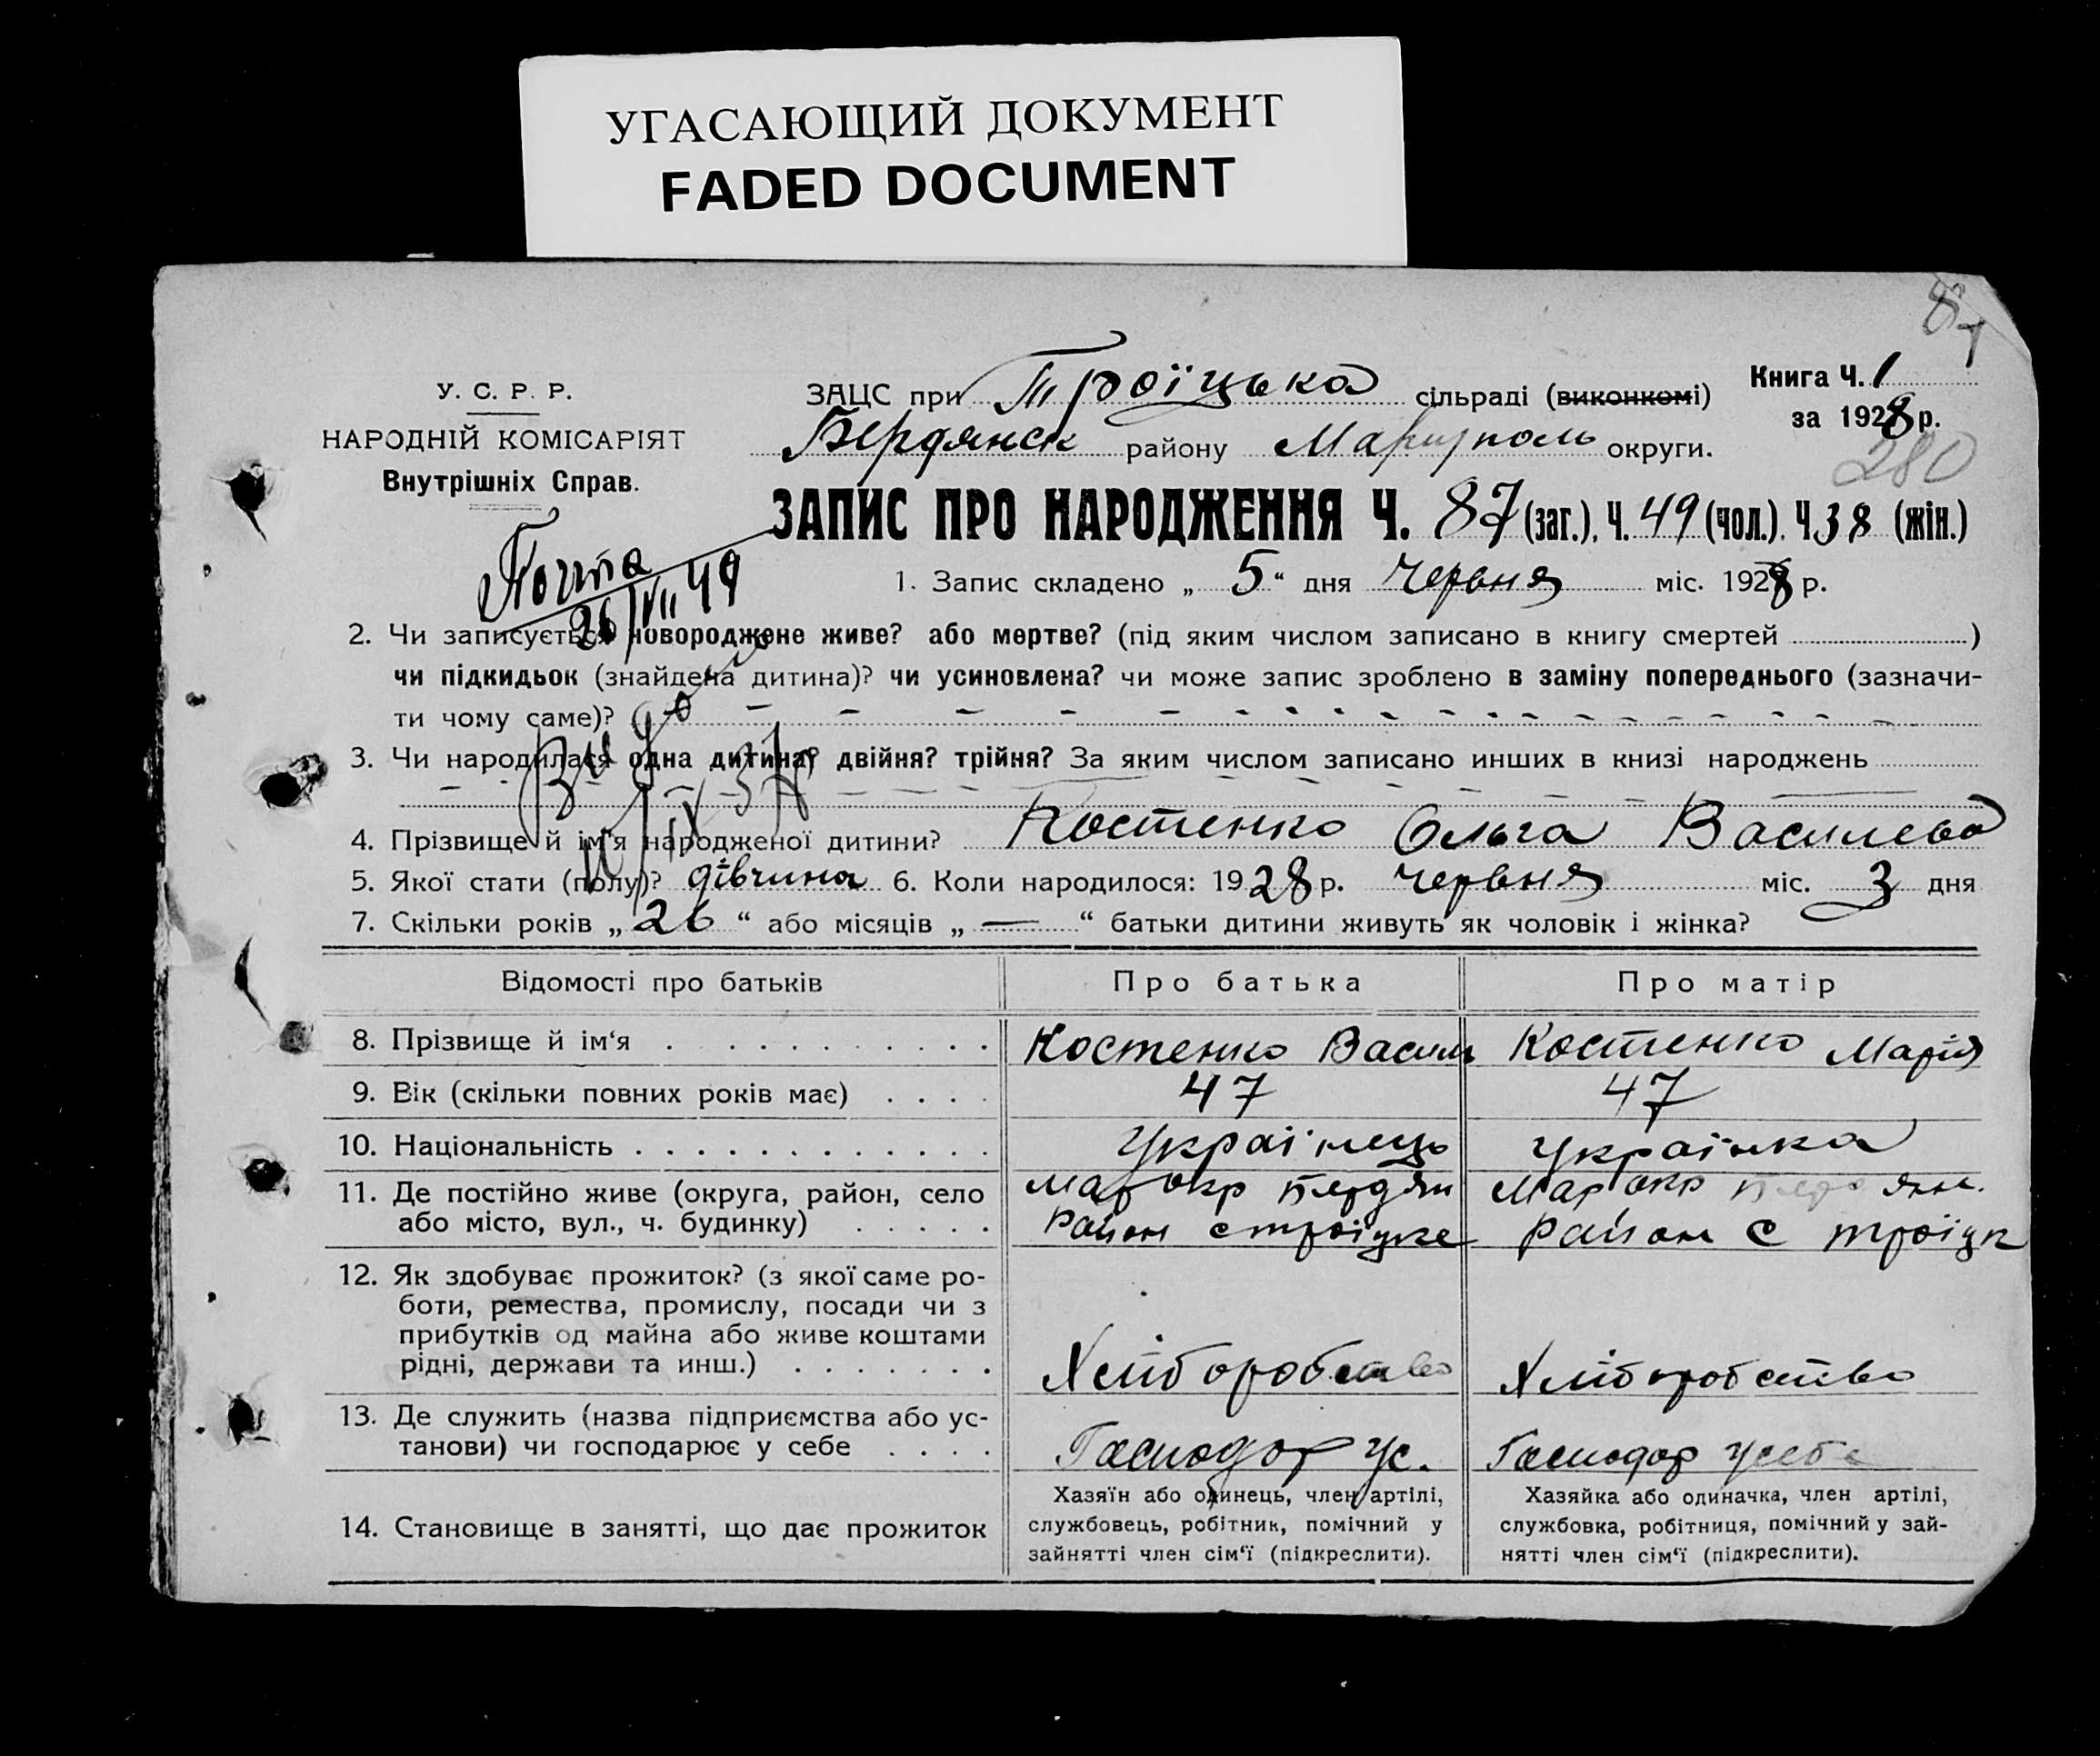 УГАСАЮЩИЙ ДОКУМЕНТ
FADED DOCUMENT
87
У. С. Р. Р.
НАРОДНІЙ КОМІСАРІЯТ
Внутрішніх Справ.
ЗАЦС при Троїцька сільраді (виконкомі)
Бердянськ району Маріуполь округи.
Книга Ч. 1
за 1928 р.
280
ЗАПИС ПРО НАРОДЖЕННЯ Ч. 87 (заг.), Ч. 49 (чол.). Ч 38 (жін.)
Почта
26/VII 49
1. Запис складено „ 5 “ дня Червня міс. 1928 р.
2. Чи записується новороджене живе? або мертве? (під яким числом записано в книгу смертей )
чи підкидьок (знайдена дитина)? чи усиновлена? чи може запис зроблено в заміну попереднього (зазначи-
ти чому саме)?
3. Чи народилася одна дитина? двійня? трійня? За яким числом записано инших в книзі народжень
4. Прізвище й ім'я народженої дитини? Костенко Ольга Василева
5. Якої стати (полу)? дівчина 6. Коли народилося: 1928 р. Червня міс. 3 дня
7. Скільки років „ 26 “ або місяців „ — “ батьки дитини живуть як чоловік і жінка?
Відомості про батьків Про батька Про матір
8. Прізвище й ім‘я . . . . . . . . . . Костенко Василь Костенко Марія
9. Вік (скільки повних років має) . . . . 47 47
10. Національність . . . . . . . . . . . . . Українець Українка
11. Де постійно живе (округа, район, село Мар окр Бердян Мар окр
або місто, вул., ч. будинку) . . . . . Район с троіцке Район с троіцк
12. Як здобуває прожиток? (з якої саме ро-
боти, ремества, промислу, посади чи з
прибутків од майна або живе коштами
рідні, держави та инш.) . . . . . . . Хліборобство Хліборобство
13. Де служить (назва підприємства або ус-
танови) чи господарює у себе . . . . Господар ус. Господар усебе
14. Становище в занятті, що дає прожиток
Хазяїн або одинець, член артілі,
службовець, робітник, помічний у
зайнятті член сім‘ї (підкреслити).
Хазяйка або одиначка, член артілі,
службовка, робітниця, помічний у зай-
нятті член сім‘ї (підкреслити).